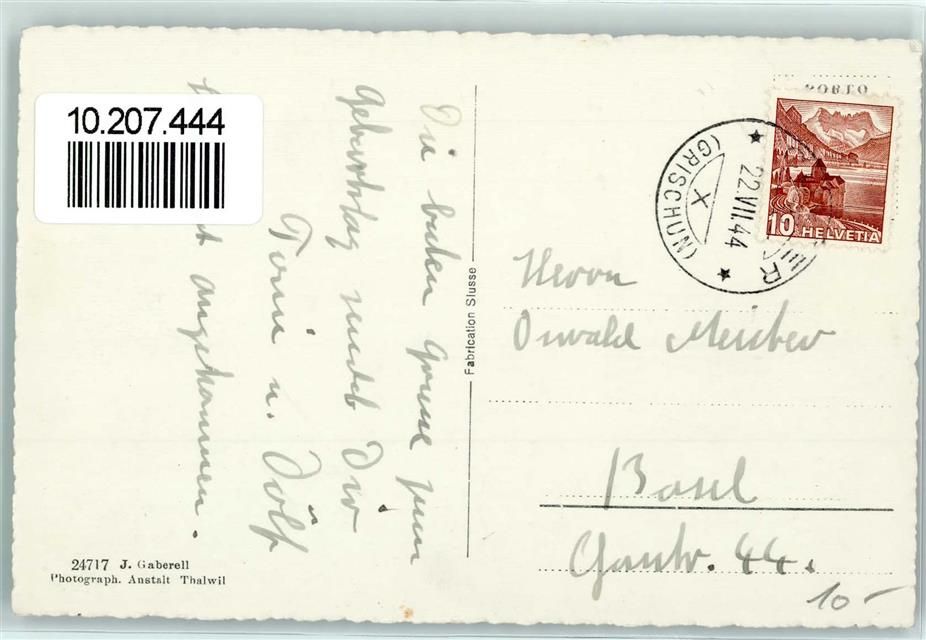 10.207.444
Die besten Grüsse zum
Geburtstag sendet Dir
u. Dölf
angekommen.
24717 J. Gaberell
Photograph. Anstalt Thalwil
Fabrication Suisse
PORTO
10 HELVETIA
(GRISCHUN)
X
22.VII.44
Herrn
Oswald Meister
Basel
44.
10-